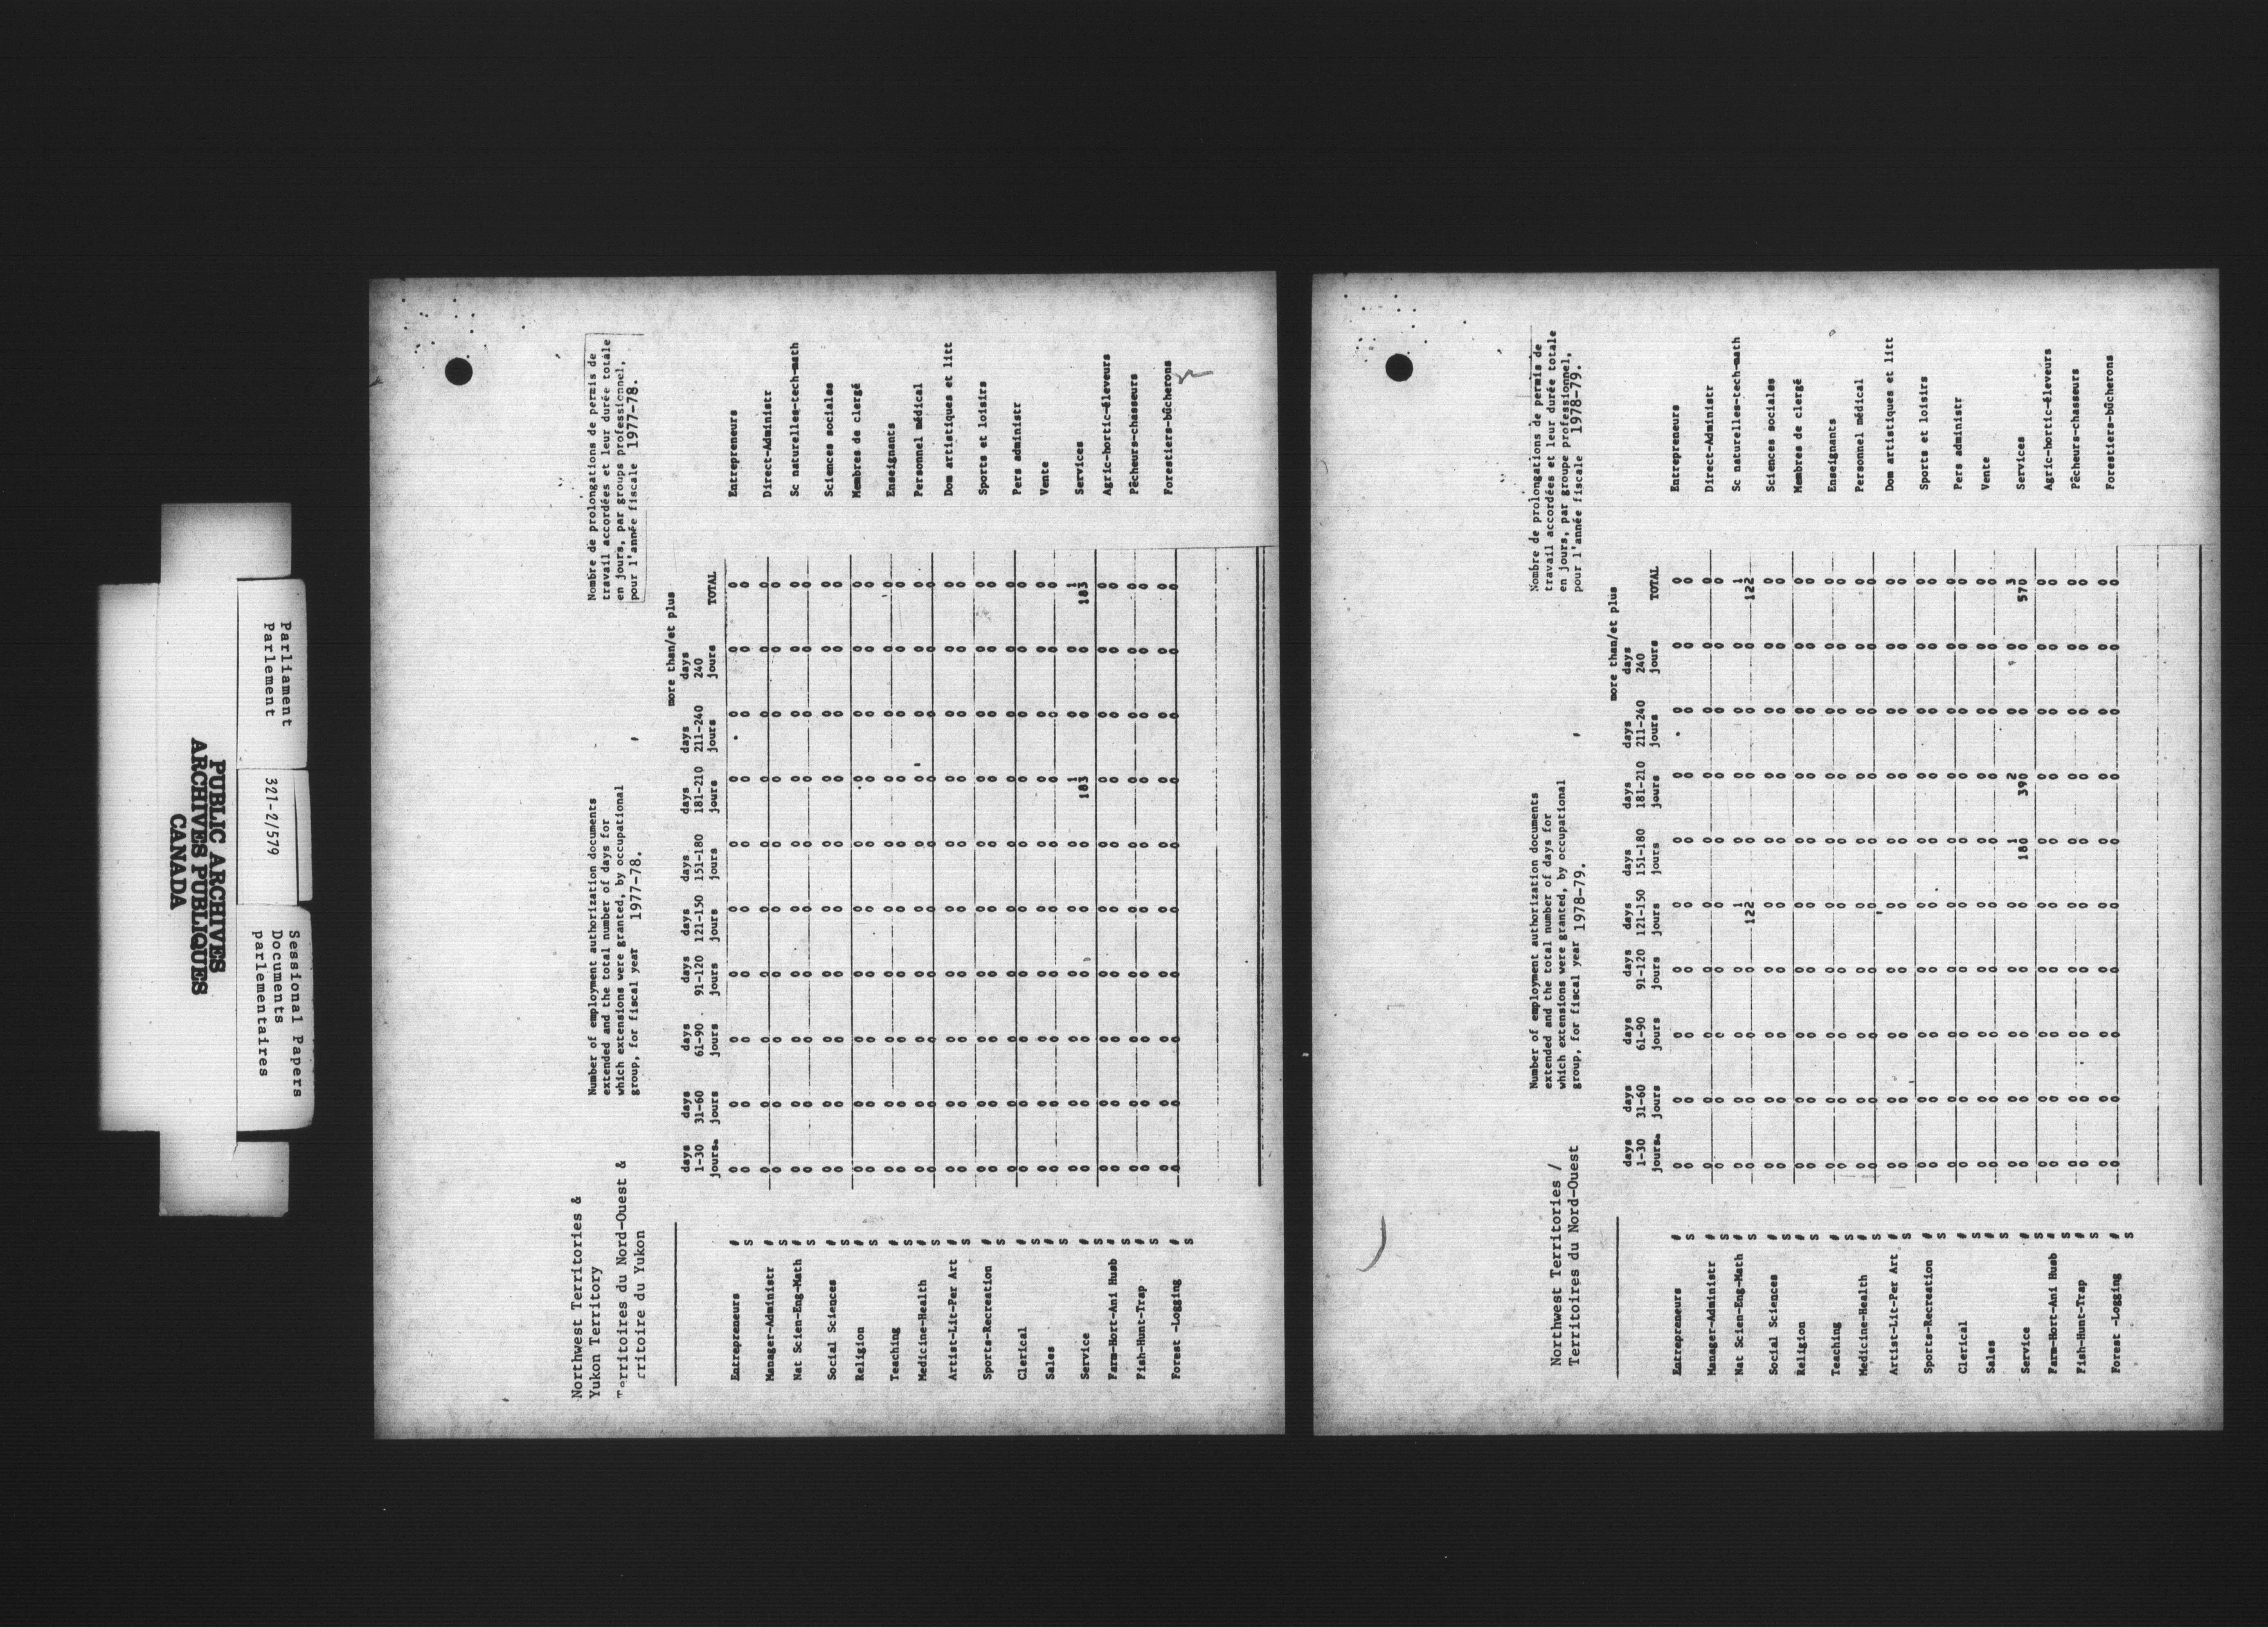 PUBLIC ARCHIVES
ARCHIVES PUBLIQUES
CANADA
Parliament
Parlement
321-2/579
Sessional Papers
Documents
parlementaires
Northwest Territories &
Yukon Territory
Territoires du Nord-Ouest &
rritoire du Yukon
Number of employment authorization documents
extended and the total number of days for
which extensions were granted, by occupational
group, for fiscal year 1977-78.
Nombre de prolongations de permis de
travail accordées et leur durée totale
en jours, par groups professionnel,
pour l'année fiscale 1977-78.
more than/et plus
days days days days days days days days days
1-30 31-60 61-90 91-120 121-150 151-180 181-210 211-240 240
jours. jours jours jours jours jours jours jours jours TOTAL
Entrepreneurs # 0 0 0 0 0 0 0 0 0 0 Entrepreneurs
S 0 0 0 0 0 0 0 0 0 0
Manager-Administr # 0 0 0 0 0 0 0 0 0 0 Direct-Administr
S 0 0 0 0 0 0 0 0 0 0
Nat Scien-Eng-Math # 0 0 0 0 0 0 0 0 0 0 Sc naturelles-tech-math
S 0 0 0 0 0 0 0 0 0 0
Social Sciences # 0 0 0 0 0 0 0 0 0 0 Sciences sociales
S 0 0 0 0 0 0 0 0 0 0
Religion # 0 0 0 0 0 0 0 0 0 0 Membres de clergé
S 0 0 0 0 0 0 0 0 0 0
Teaching # 0 0 0 0 0 0 0 0 0 0 Enseignants
S 0 0 0 0 0 0 0 0 0 0
Medicine-Health # 0 0 0 0 0 0 0 0 0 0 Personnel médical
S 0 0 0 0 0 0 0 0 0 0
Artist-Lit-Per Art # 0 0 0 0 0 0 0 0 0 0 Dom artistiques et litt
S 0 0 0 0 0 0 0 0 0 0
Sports-Recreation # 0 0 0 0 0 0 0 0 0 0 Sports et loisirs
S 0 0 0 0 0 0 0 0 0 0
Clerical # 0 0 0 0 0 0 0 0 0 0 Pers administr
S 0 0 0 0 0 0 0 0 0 0
Sales # 0 0 0 0 0 0 0 0 0 0 Vente
S 0 0 0 0 0 0 0 0 0 0
Service # 0 0 0 0 0 0 1 0 0 1 Services
S 0 0 0 0 0 0 183 0 0 183
Farm-Hort-Ani Husb # 0 0 0 0 0 0 0 0 0 0 Agric-hortic-éleveurs
S 0 0 0 0 0 0 0 0 0 0
Fish-Hunt-Trap # 0 0 0 0 0 0 0 0 0 0 Pêcheurs-chasseurs
S 0 0 0 0 0 0 0 0 0 0
Forest -Logging # 0 0 0 0 0 0 0 0 0 0 Forestiers-bûcherons
S 0 0 0 0 0 0 0 0 0 0
Northwest Territories /
Territoires du Nord-Ouest
Number of employment authorization documents
extended and the total number of days for
which extensions were granted, by occupational
group, for fiscal year 1978-79.
Nombre de prolongations de permis de
travail accordées et leur durée totale
en jours, par groupe professionnel,
pour l'année fiscale 1978-79.
more than/et plus
days days days days days days days days days
1-30 31-60 61-90 91-120 121-150 151-180 181-210 211-240 240
jours. jours jours jours jours jours jours jours jours TOTAL
Entrepreneurs # 0 0 0 0 0 0 0 0 0 0 Entrepreneurs
S 0 0 0 0 0 0 0 0 0 0
Manager-Administr # 0 0 0 0 0 0 0 0 0 0 Direct-Administr
S 0 0 0 0 0 0 0 0 0 0
Nat Scien-Eng-Math # 0 0 0 0 1 0 0 0 0 1 Sc naturelles-tech-math
S 0 0 0 0 122 0 0 0 0 122
Social Sciences # 0 0 0 0 0 0 0 0 0 0 Sciences sociales
S 0 0 0 0 0 0 0 0 0 0
Religion # 0 0 0 0 0 0 0 0 0 0 Membres de clergé
S 0 0 0 0 0 0 0 0 0 0
Teaching # 0 0 0 0 0 0 0 0 0 0 Enseignants
S 0 0 0 0 0 0 0 0 0 0
Medicine-Health # 0 0 0 0 0 0 0 0 0 0 Personnel médical
S 0 0 0 0 0 0 0 0 0 0
Artist-Lit-Per Art # 0 0 0 0 0 0 0 0 0 0 Dom artistiques et litt
S 0 0 0 0 0 0 0 0 0 0
Sports-Recreation # 0 0 0 0 0 0 0 0 0 0 Sports et loisirs
S 0 0 0 0 0 0 0 0 0 0
Clerical # 0 0 0 0 0 0 0 0 0 0 Pers administr
S 0 0 0 0 0 0 0 0 0 0
Sales # 0 0 0 0 0 0 0 0 0 0 Vente
S 0 0 0 0 0 0 0 0 0 0
Service # 0 0 0 0 0 1 2 0 0 3 Services
S 0 0 0 0 0 180 390 0 0 570
Farm-Hort-Ani Husb # 0 0 0 0 0 0 0 0 0 0 Agric-hortic-éleveurs
S 0 0 0 0 0 0 0 0 0 0
Fish-Hunt-Trap # 0 0 0 0 0 0 0 0 0 0 Pêcheurs-chasseurs
S 0 0 0 0 0 0 0 0 0 0
Forest -Logging # 0 0 0 0 0 0 0 0 0 0 Forestiers-bûcherons
S 0 0 0 0 0 0 0 0 0 0